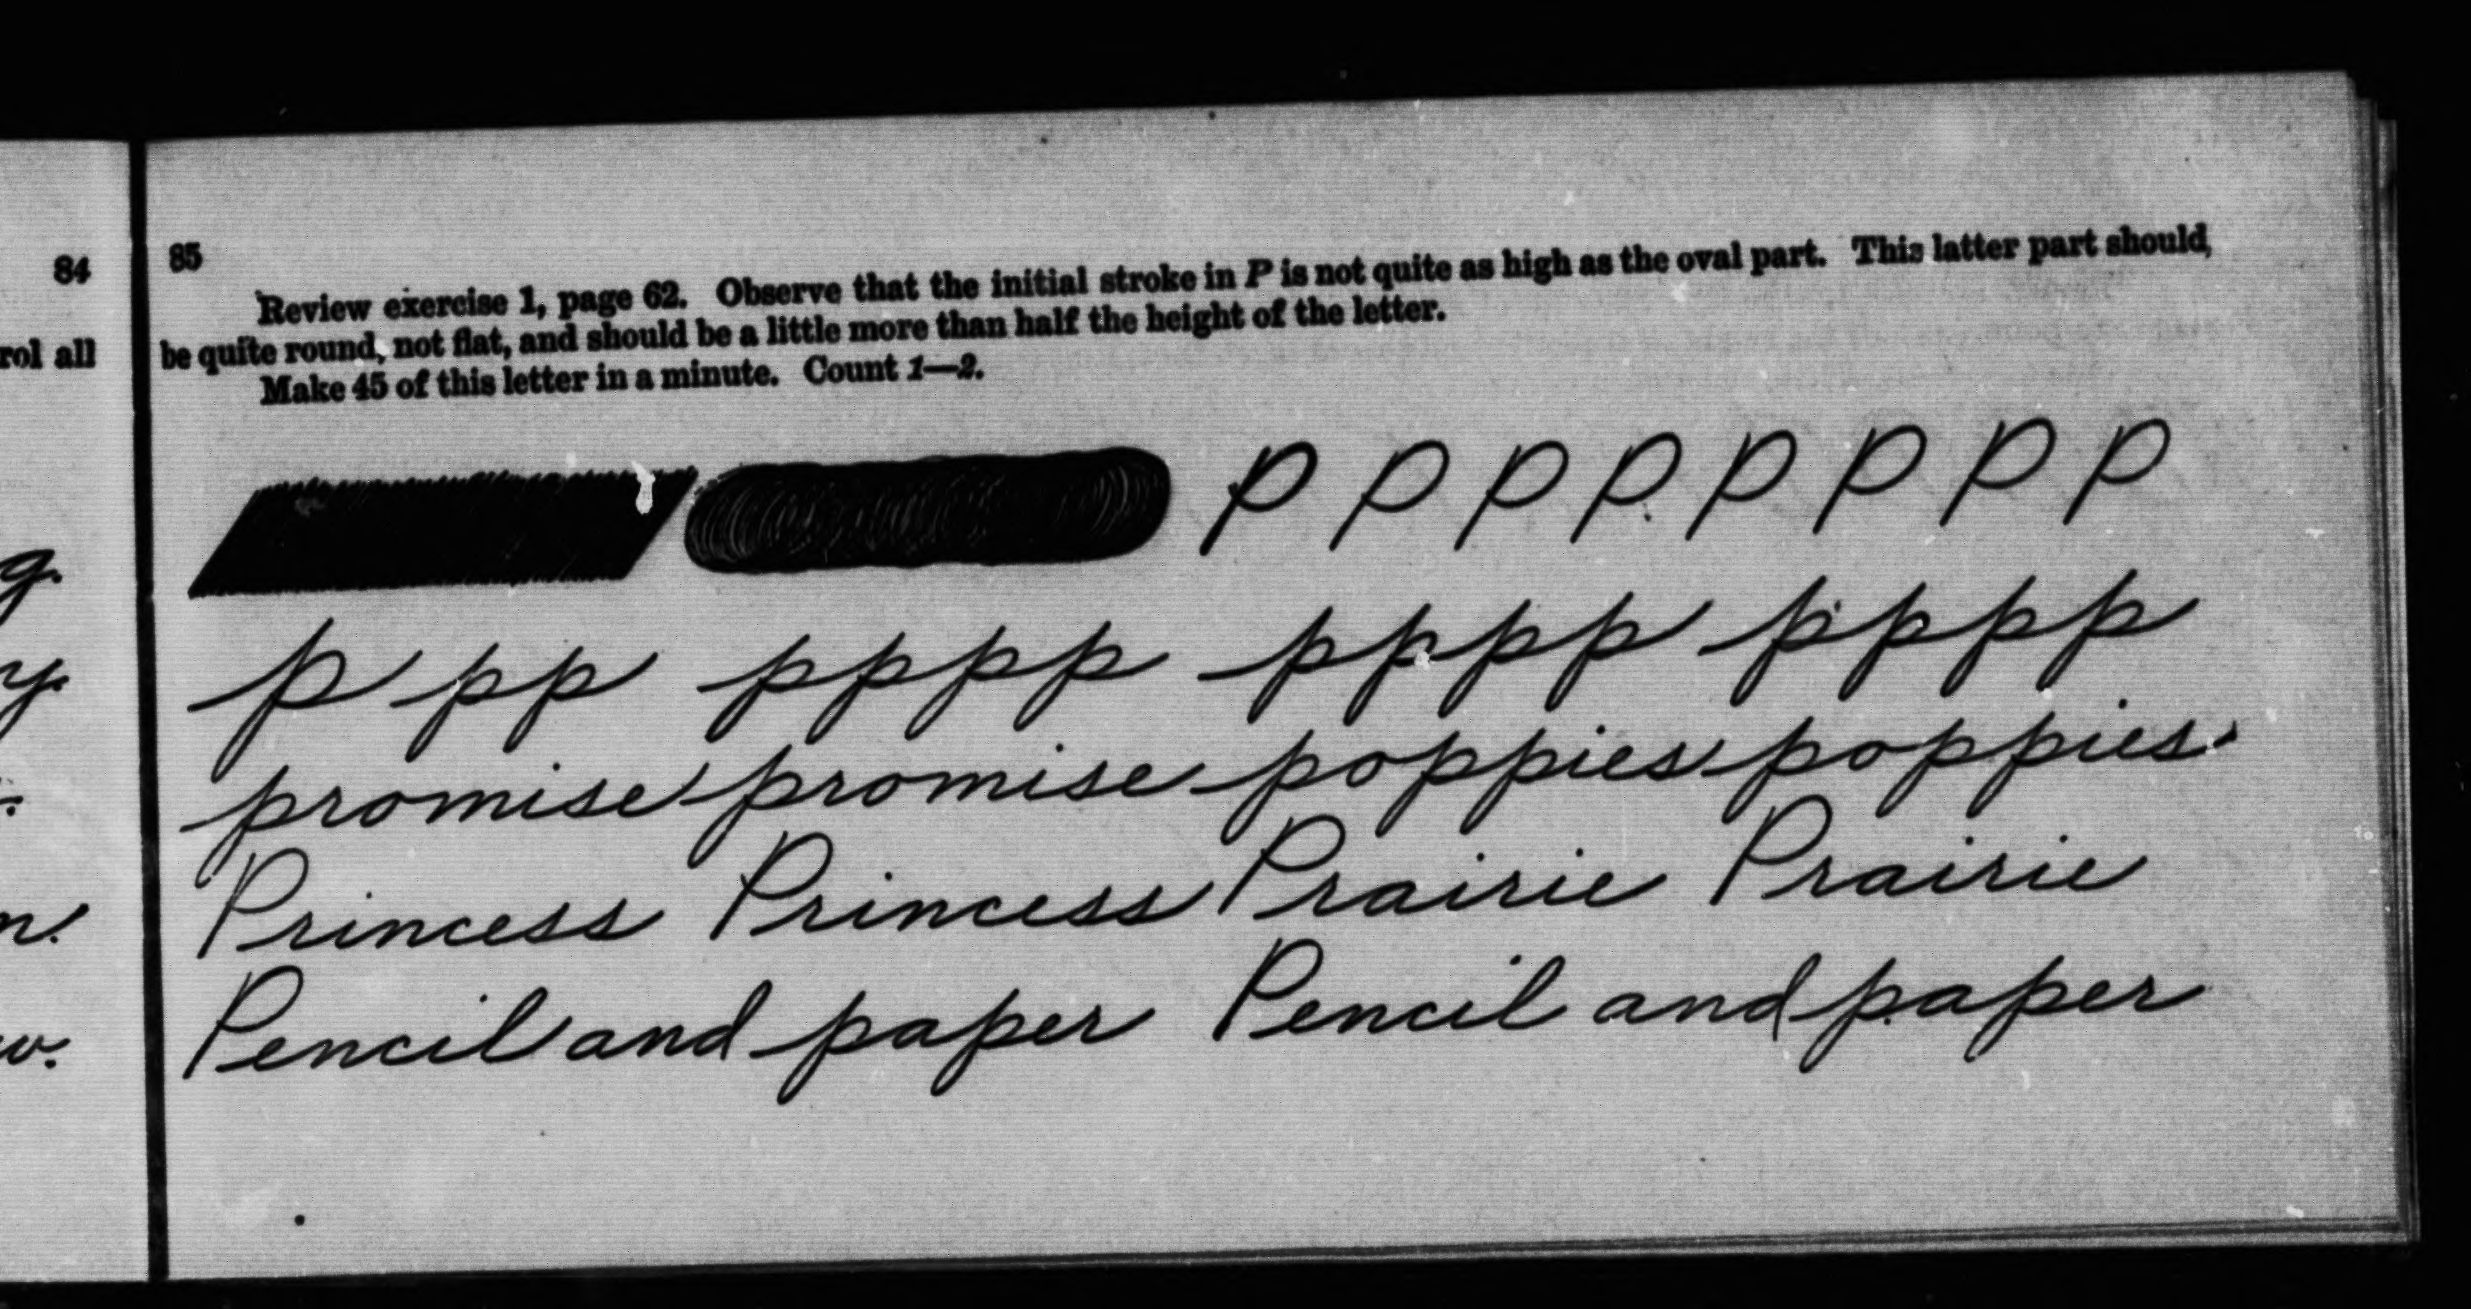 84
rol all
g.
y.
n.
w.
85
Review exercise 1, page 62. Observe that the initial stroke in P is not quite as high as the oval part. This latter part should
be quite round, not flat, and should be a little more than half the height of the letter.
Make 45 of this letter in a minute. Count 1—2.
P P P P P P P P
p p p p p p p p p p p p p p p
promise promise poppies poppies.
Princess Princess Prairie Prairie
Pencil and paper Pencil and paper